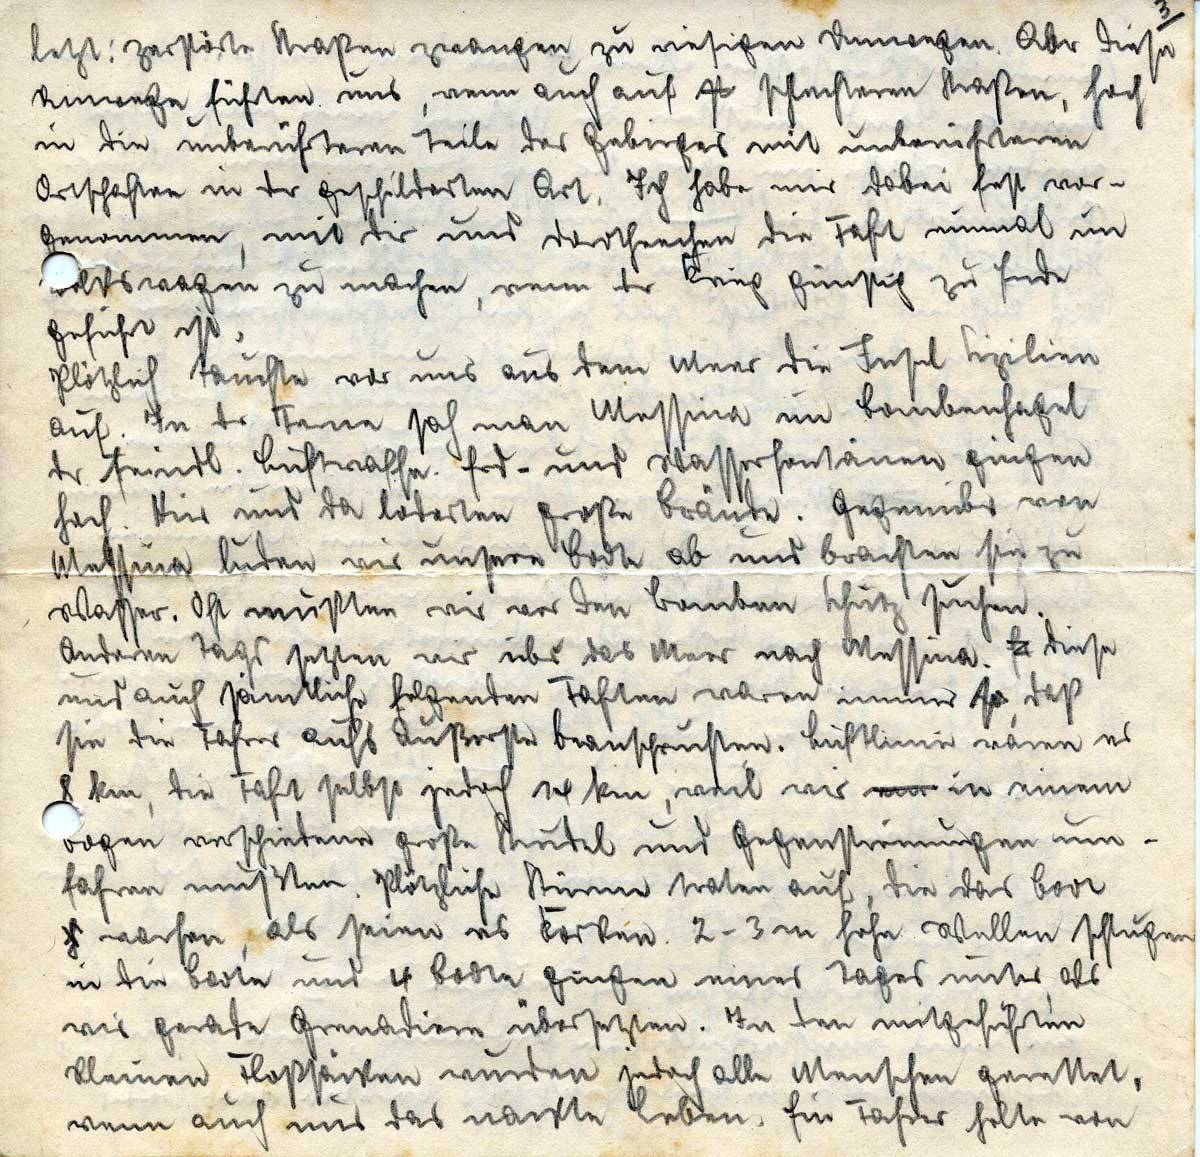 3/
letzt: zerstörte Straßen zwangen zu riesigen Umwegen. Aber diese
Umwege führten uns, wenn auch auf schlechteren Straßen, hoch
in die unberührteren Teile des Gebirges mit unberührteren
Ortschaften in der geschilderten Art. Ich habe mir dabei fest vor-
genommen, mit dir und Dorotheechen die Fahrt einmal im
Volkswagen zu machen, wenn der Krieg günstig zu Ende
geführt ist.
Plötzlich tauchte vor uns aus dem Meer die Insel Sizilien
auf. In der Ferne sah man Messina im Bombenhagel
der feindl. Luftwaffe. Erd- und Wasserfontänen gingen
hoch. Hier und da loderten große Brände. Gegenüber von
Messina luden wir unsere Boote ab und brachten sie zu
Wasser. Oft mußten wir vor den Bomben Schutz suchen.
Anderen Tags setzten wir über das Meer nach Messina. Diese
und auch sämtliche folgenden Fahrten waren immer so, daß
sie die Fahrer aufs Äußerste beanspruchten. Luftlinie waren es
8 km, die Fahrt selbst jedoch 14 km, weil wir in einem
Bogen verschiedene große Strudel und Gegenströmungen um-
fahren mußten. Plötzliche Stürme traten auf, die das Boot
warfen, als seien es Korken. 2-3 m hohe Wellen schlugen
in die Boote und 4 Boote gingen eines Tages unter, als
wir gerade Grenadiere übersetzten. In den mitgeführten
kleinen Floßsäcken wurden jedoch alle Menschen gerettet,
wenn auch nur das nackte Leben. Ein Fahrer holte von